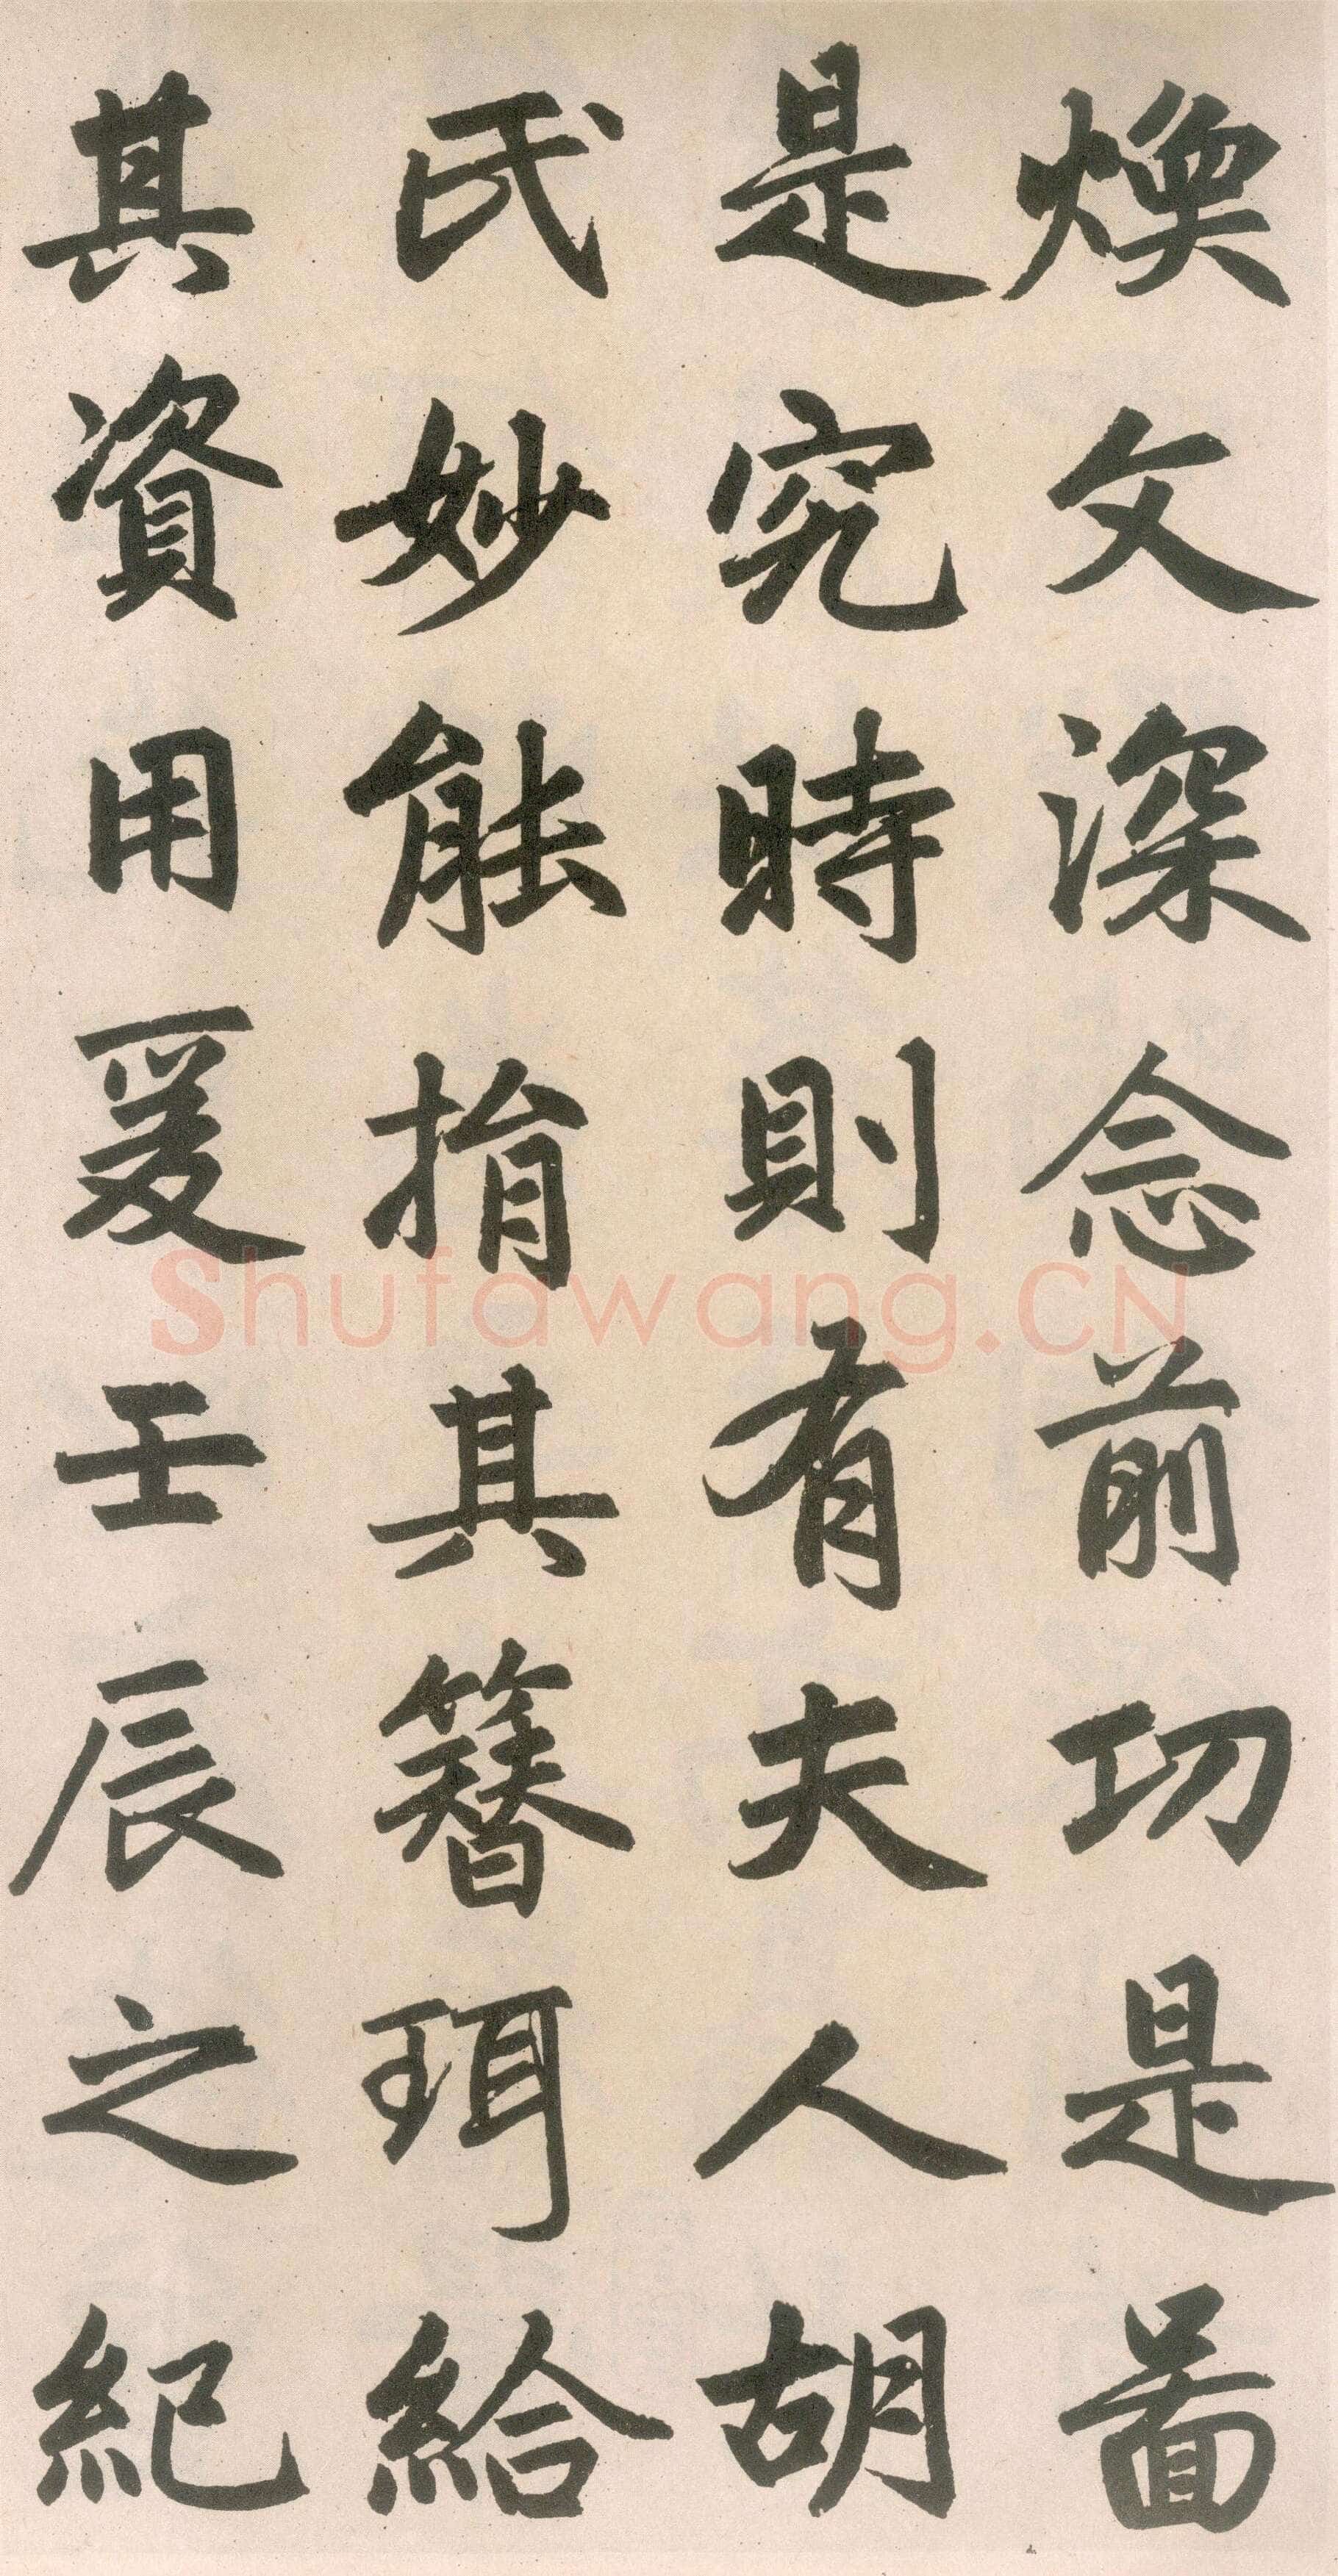 煥文深念前功是啚
是究時則有夫人胡
氏妙能捐其簪珥給
其資用爰壬辰之紀
Shufawang.CN